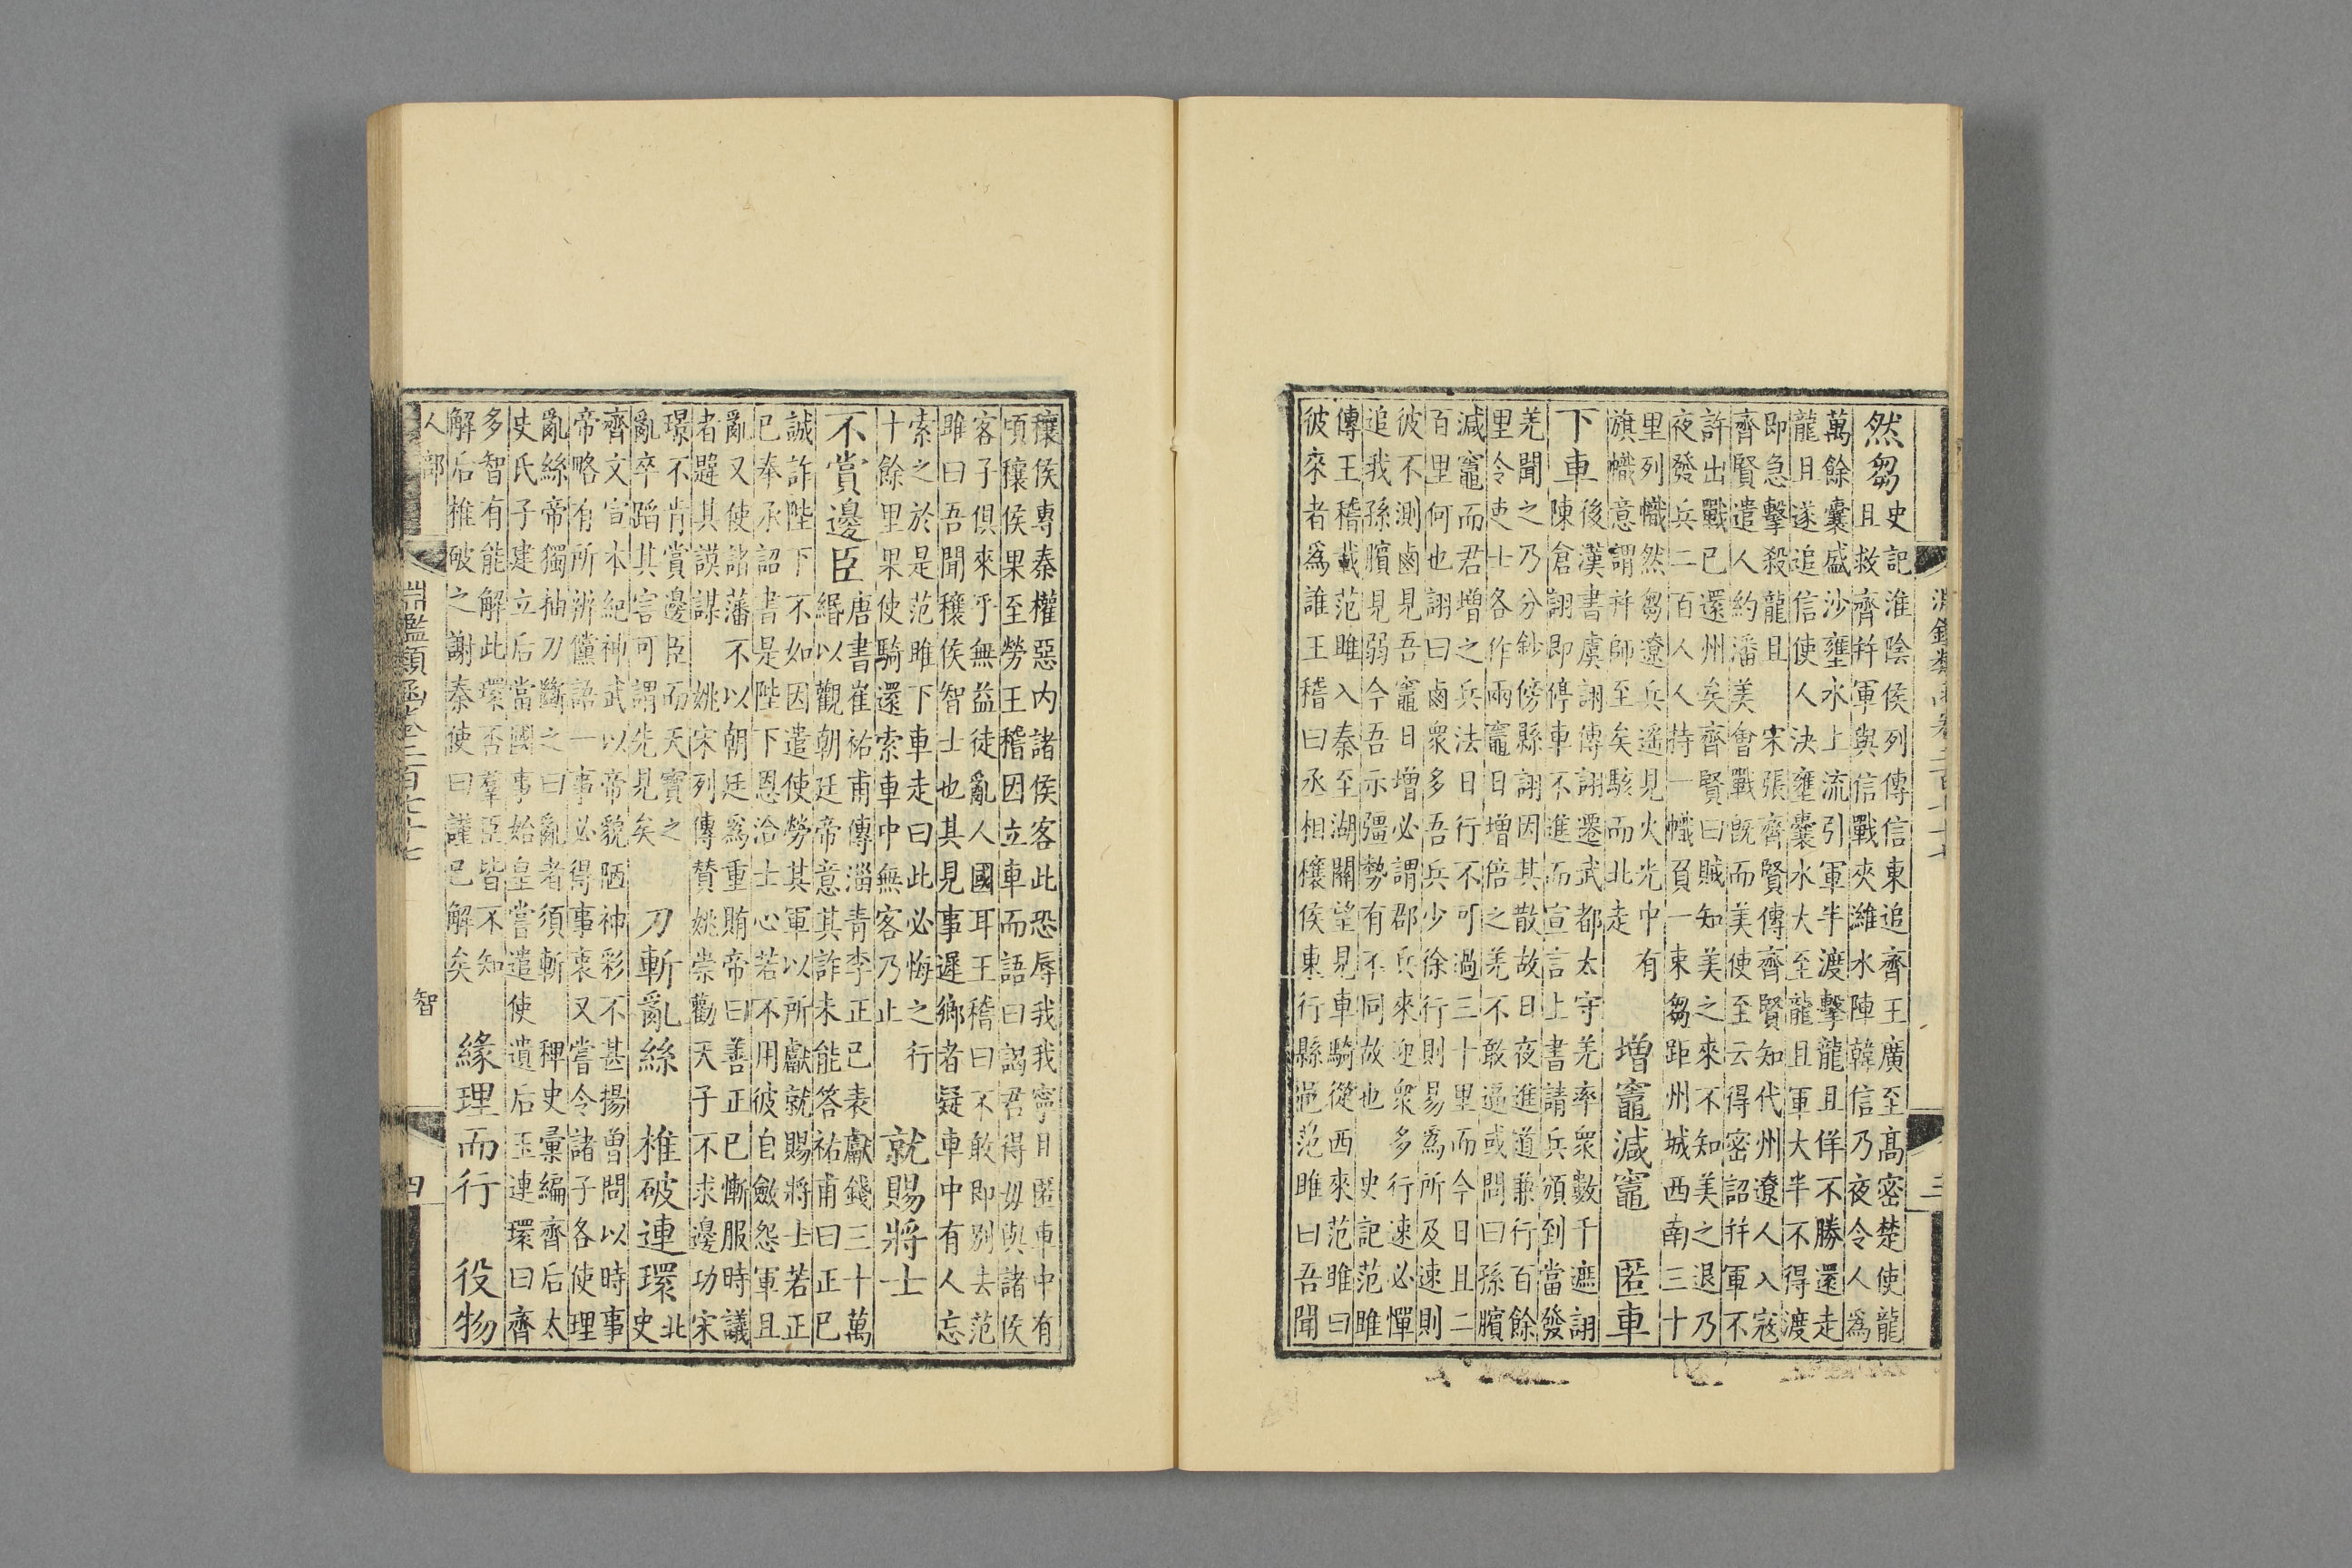 淵鑑類函卷二百七十七 三
然芻
史記淮陰侯列傳信東追齊王廣至高密楚使龍
且救齊幷軍與信戰夾濰水陣韓信乃夜令人爲
萬餘囊盛沙壅水上流引軍半渡擊龍且佯不勝還走
龍且遂追信使人決壅囊水大至龍且軍大半不得渡
即急擊殺龍且 宋張齊賢傳齊賢知代州遼人入寇
齊賢遣人約潘美會戰旣而美使至云得密詔幷軍不
許出戰已還州矣齊賢曰賊知美之來不知美之退乃
夜發兵二百人人持一幟負一束芻距州城西南三十
里列幟然芻遼兵遙見火光中有
旗幟意謂幷師至矣駭而北走
增竈減竈 匿車
下車
後漢書虞詡傳詡遷武都太守羌率衆數千遮詡
陳倉詡即停車不進而宣言上書請兵須到當發
羌聞之乃分鈔傍縣詡因其散故日夜進道兼行百餘
里令吏士各作兩竈日增倍之羌不敢逼或問曰孫臏
減竈而君增之兵法日行不過三十里而今日且二
百里何也詡曰鹵衆多吾兵少徐行則易爲所及速則
彼不測鹵見吾竈日增必謂郡兵來迎衆多行速必憚
追我孫臏見弱今吾示彊勢有不同故也 史記范雎
傳王稽載范雎入秦至湖關望見車騎從西來范雎曰
彼來者爲誰王稽曰丞相穰侯東行縣邑范雎曰吾聞
穰侯專秦權惡内諸侯客此恐辱我我寧且匿車中有
頃穰侯果至勞王稽因立車而語曰謁君得毋與諸侯
客子俱來乎無益徒亂人國耳王稽曰不敢即別去范
雎曰吾聞穰侯智士也其見事遲鄉者疑車中有人忘
索之於是范雎下車走曰此必悔之行
十餘里果使騎還索車中無客乃止
就賜將士
不賞邊臣
唐書崔祐甫傳淄青李正已表獻錢三十萬
緡以觀朝廷帝意其詐未能答祐甫曰正已
誠詐陛下不如因遣使勞其軍以所獻就賜將士若正
已奉承詔書是陛下恩洽士心若不用彼自斂怨軍且
亂又使諸藩不以朝廷爲重賄帝曰善正已慚服時議
者韙其謨謀 姚宋列傳贊姚崇勸天子不求邊功宋
璟不肯賞邊臣而天寶之
亂卒蹈其害可謂先見矣
刀斬亂絲 椎破連環
北
史
齊文宣本紀神武以帝貌陋神彩不甚揚曾問以時事
帝略有所辨儻語一事必得事衷又嘗令諸子各使理
亂絲帝獨抽刀斷之曰亂者須斬 稗史彙編齊后太
史氏子建立后當國事始皇嘗遣使遺后玉連環曰齊
多智有能解此環否羣臣皆不知
解后椎破之謝秦使曰謹已解矣
緣理而行 役物
人部 智
淵鑑類函卷二百七十七 四